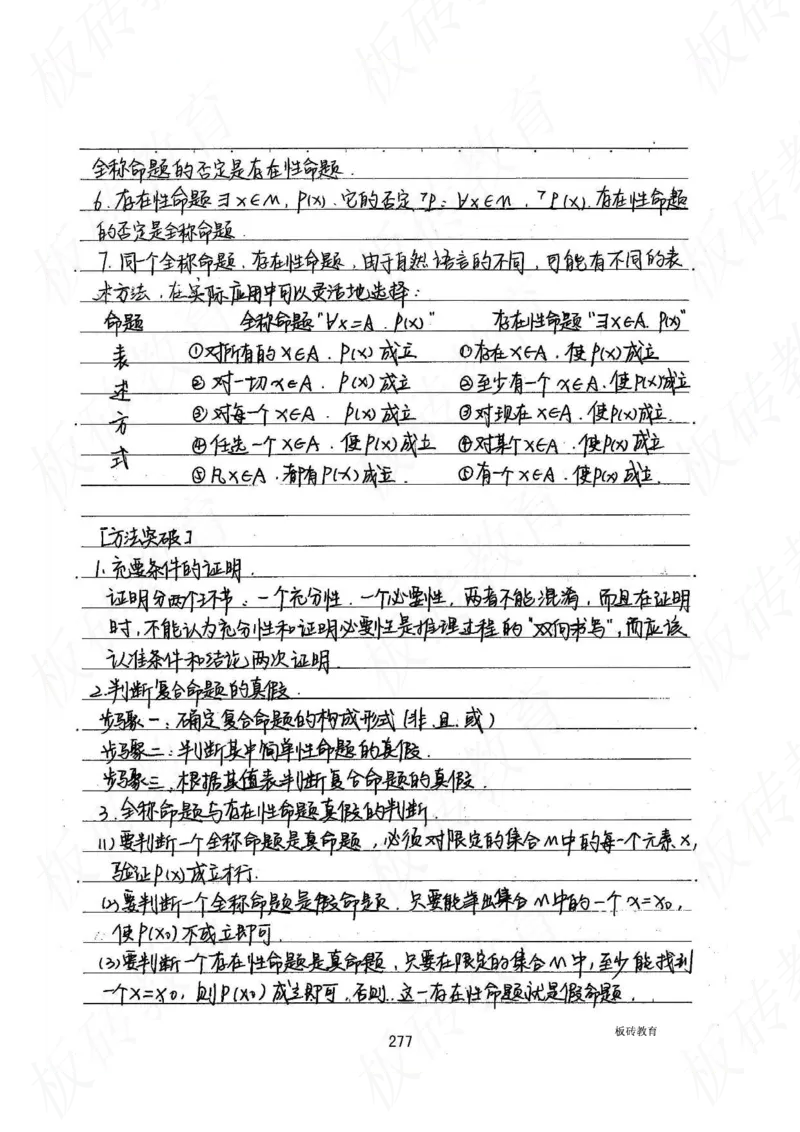 全称命题的否定是存在性命题.
6.存在性命题∃x∈M,P(x).它的否定¬P:∀x∈M,¬P(x).存在性命题
的否定是全称命题.
7.同一个全称命题.存在性命题,由于自然语言的不同,可能有不同的表
术方法,在实际应用中可以灵活地选择:
命题 全称命题"∀x=A.P(x)" 存在性命题"∃x∈A.P(x)"
表 ①对所有的x∈A.P(x)成立 ①存在x∈A.使P(x)成立
述 ②对一切x∈A.P(x)成立 ②至少有一个x∈A.使P(x)成立
方 ③对每一个x∈A.P(x)成立 ③对现在x∈A.使P(x)成立.
式 ④任选一个x∈A.使P(x)成立 ④对某个x∈A.使P(x)成立
⑤凡x∈A.都有P(x)成立. ⑤有一个x∈A.使P(x)成立.
[方法突破]
1.充要条件的证明.
证明分两个环节:一个充分性.一个必要性,两者不能混淆,而且在证明
时,不能认为充分性和证明必要性是推理过程的"双向书写",而应该
认准条件和结论,两次证明.
2.判断复合命题的真假.
步骤一:确定复合命题的构成形式(非.且.或)
步骤二:判断其中简单性命题的真假.
步骤三.根据其值表判断复合命题的真假.
3.全称命题与存在性命题真假的判断.
(1)要判断一个全称命题是真命题,必须对限定的集合M中的每一个元素x,
验证P(x)成立才行.
(2)要判断一个全称命题是假命题.只要能举出集合M中的一个x=x₀,
使P(x₀)不成立即可.
(3)要判断一个存在性命题是真命题,只要在限定的集合M中,至少能找到
一个x=x₀,则P(x₀)成立即可.否则.这一存在性命题就是假命题.
板砖教育
277